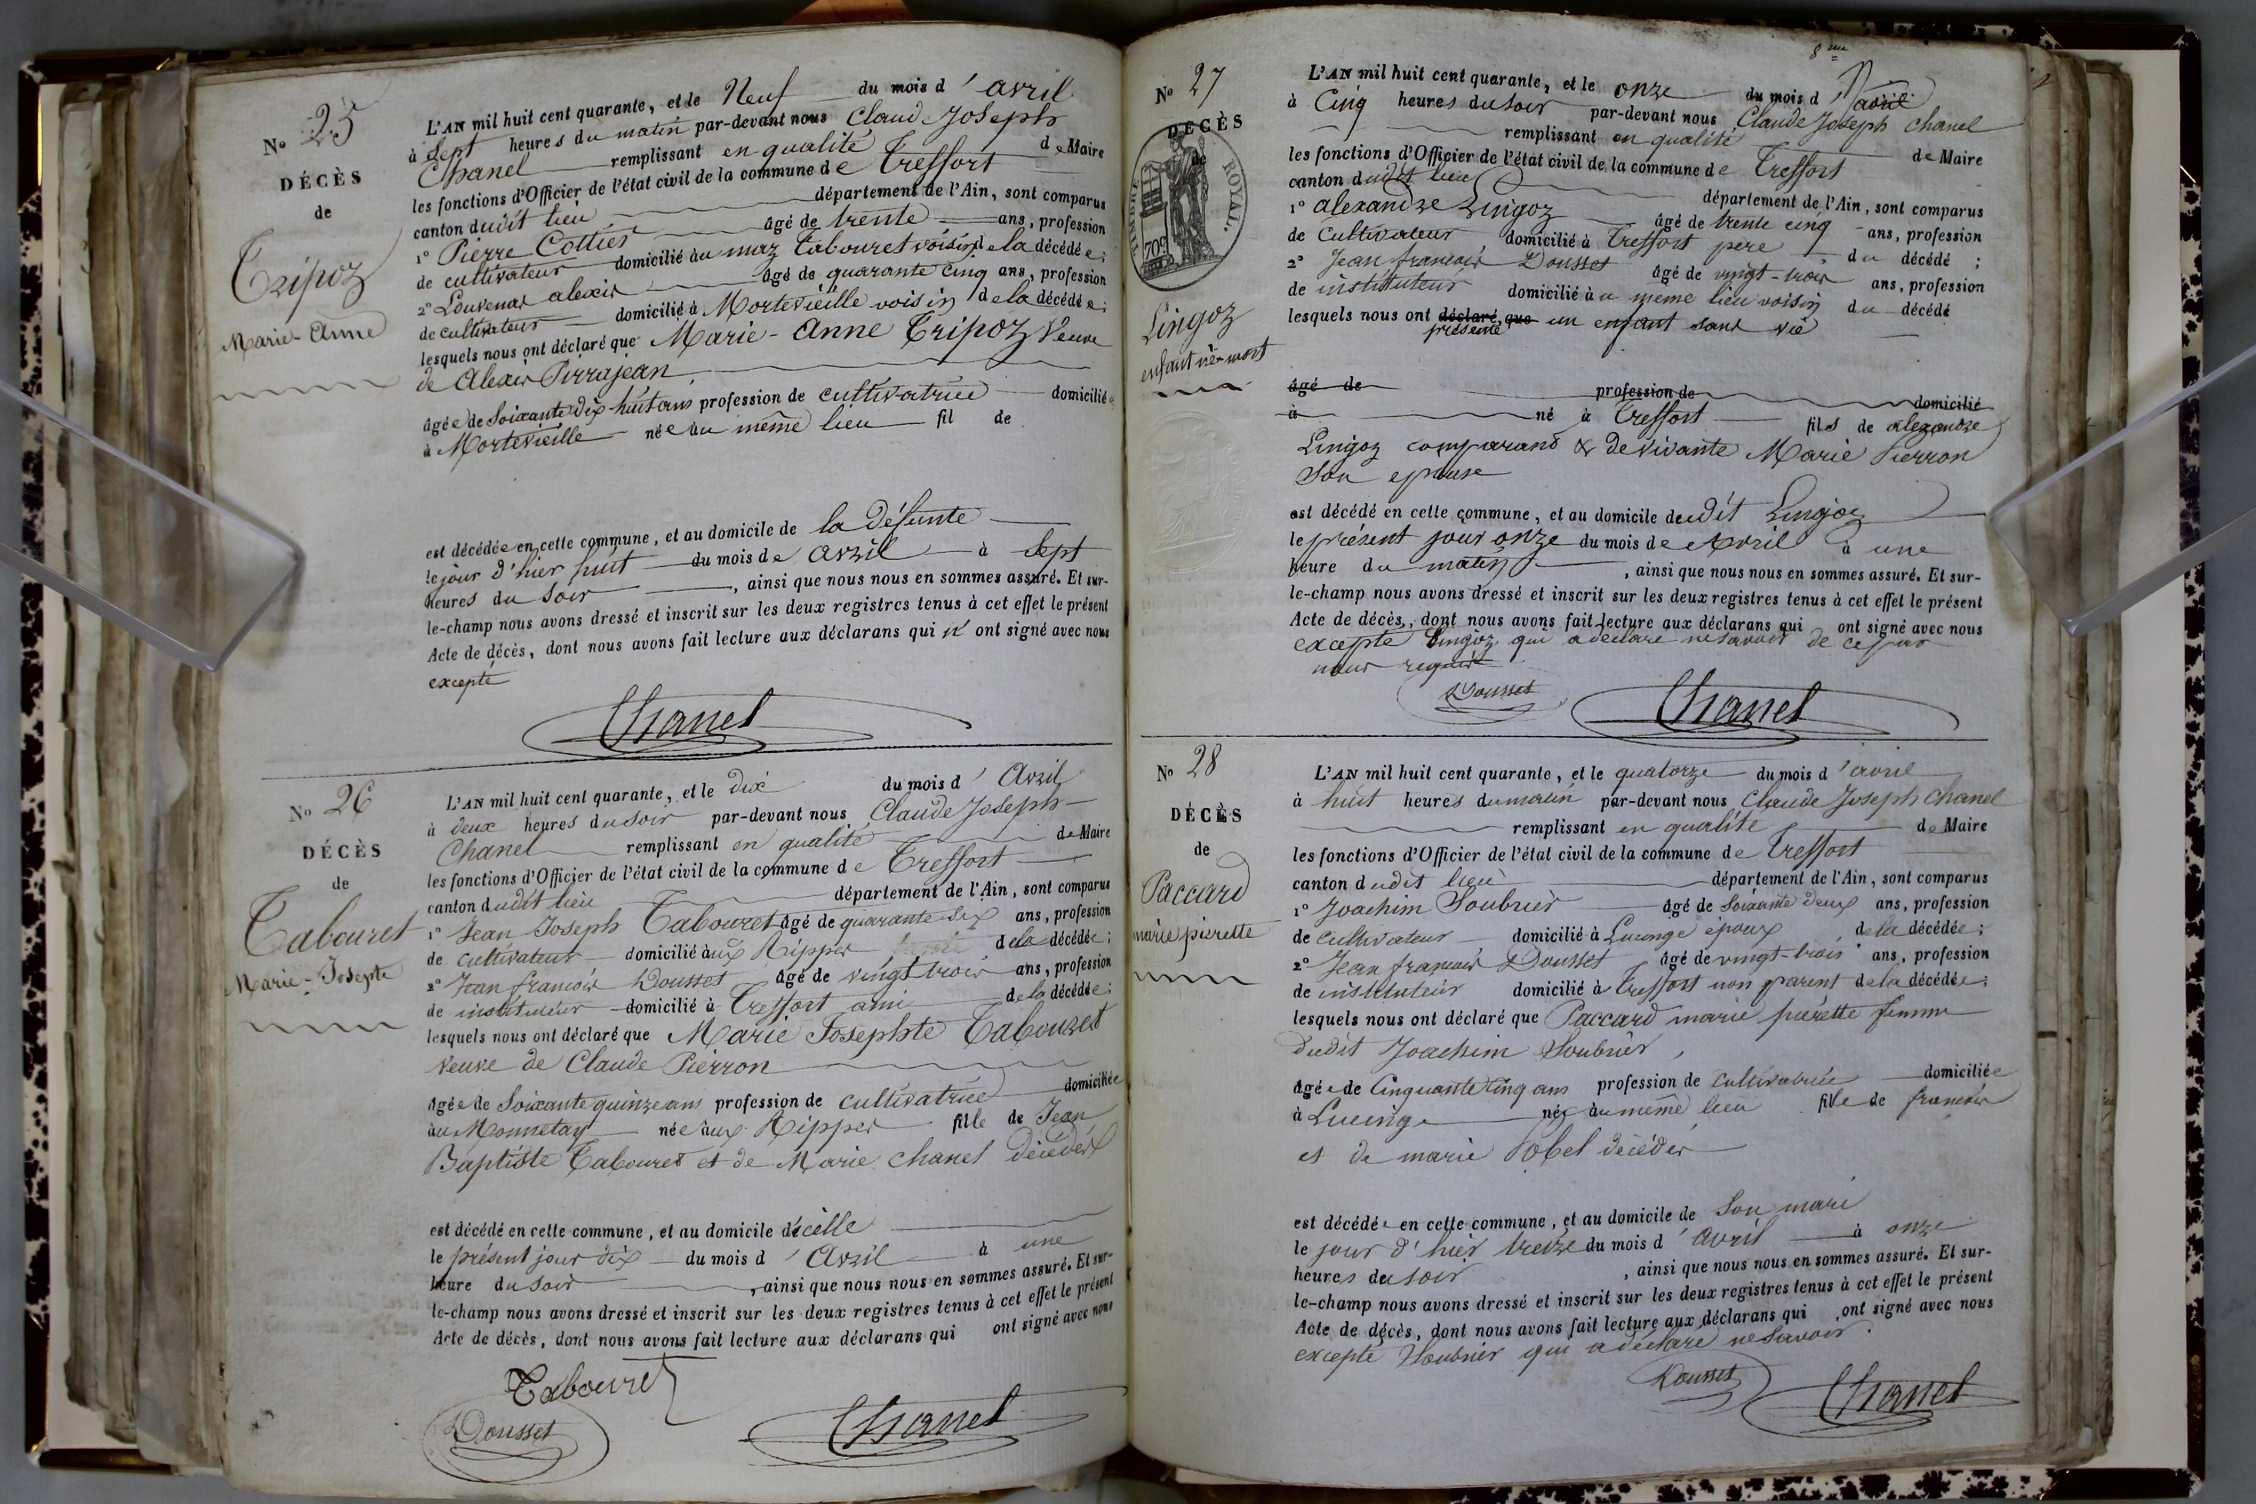 N° 25
DÉCÈS
de
Tripoz
Marie-Anne
L'AN mil huit cent quarante, et le Neuf du mois d'avril
à Sept heures du matin par-devant nous Claude Joseph
Chanel remplissant en qualité de Maire
les fonctions d'Officier de l'état civil de la commune de Treffort
canton dudit lieu département de l'Ain, sont comparus
1° Pierre Cottier âgé de trente ans, profession
de cultivateur domicilié au maz Tabouret voisin de la décédée;
2° Louvenas alexis âgé de quarante cinq ans, profession
de cultivateur domicilié à Mortevieille voisin de la décédée;
lesquels nous ont déclaré que Marie-Anne Tripoz Veuve
de Alexis Pirrajean
âgée de Soixante dix huit ans profession de cultivatrice domiciliée
à Mortevieille née au même lieu fil de
est décédée en cette commune, et au domicile de la défunte
le jour d'hier huit du mois de avril à Sept
heures du Soir, ainsi que nous nous en sommes assuré. Et sur-
le-champ nous avons dressé et inscrit sur les deux registres tenus à cet effet le présent
Acte de décès, dont nous avons fait lecture aux déclarans qui n' ont signé avec nous
excepté
Chanel
N° 26
DÉCÈS
de
Tabouret
Marie-Josephte
L'AN mil huit cent quarante, et le dix du mois d'Avril
à deux heures du soir par-devant nous Claude Joseph
Chanel remplissant en qualité de Maire
les fonctions d'Officier de l'état civil de la commune de Treffort
canton dudit lieu département de l'Ain, sont comparus
1° Jean Joseph Tabouret âgé de quarante six ans, profession
de cultivateur domicilié aux Rippes de la décédée;
2° Jean francois Dousset âgé de vingt trois ans, profession
de instituteur domicilié à Treffort ami de la décédée;
lesquels nous ont déclaré que Marie Josephte Tabouret
veuve de Claude Pierron
âgée de Soixante quinze ans profession de cultivatrice domiciliée
au Monnetay née aux Rippes fille de Jean
Baptiste Tabouret et de Marie Chanel décédés
est décédé en cette commune, et au domicile d'icelle
le présent jour dix du mois d'Avril à une
heure du soir, ainsi que nous nous en sommes assuré. Et sur-
le-champ nous avons dressé et inscrit sur les deux registres tenus à cet effet le présent
Acte de décès, dont nous avons fait lecture aux déclarans qui ont signé avec nous
Tabouret
Dousset
Chanel
8me
N° 27
DÉCÈS
de
TIMBRE ROYAL
70c
Lingoz
enfant né-mort
L'AN mil huit cent quarante, et le onze du mois d'avril
à Cinq heures du soir par-devant nous Claude Joseph Chanel
remplissant en qualité de Maire
les fonctions d'Officier de l'état civil de la commune de Treffort
canton dudit lieu département de l'Ain, sont comparus
1° alexandre Lingoz âgé de trente cinq ans, profession
de Cultivateur domicilié à Treffort père du décédé;
2° Jean francois Dousset âgé de vingt-trois ans, profession
de instituteur domicilié au meme lieu voisin du décédé
lesquels nous ont déclaré que présenté un enfant sans vie
âgé de profession de domicilié
à né à Treffort fils de alexandre
Lingoz comparand & de vivante Marie Pierron
Son epouse
est décédé en cette commune, et au domicile dudit Lingoz
le présent jour onze du mois de Avril à une
heure du matin, ainsi que nous nous en sommes assuré. Et sur-
le-champ nous avons dressé et inscrit sur les deux registres tenus à cet effet le présent
Acte de décès, dont nous avons fait lecture aux déclarans qui ont signé avec nous
excepté Lingoz qui a déclaré ne savoir de ce par
nous requis
Dousset
Chanel
N° 28
DÉCÈS
de
Paccard
marie pierette
L'AN mil huit cent quarante, et le quatorze du mois d'avril
à huit heures du matin par-devant nous Claude Joseph Chanel
remplissant en qualité de Maire
les fonctions d'Officier de l'état civil de la commune de Treffort
canton dudit lieu département de l'Ain, sont comparus
1° Joachim Soubrier âgé de Soixante deux ans, profession
de cultivateur domicilié à Lucinge époux de la décédée;
2° Jean francois Dousset âgé de vingt-trois ans, profession
de instituteur domicilié à Treffort non parent de la décédée;
lesquels nous ont déclaré que Paccard marie pierette femme
dudit Joachim Soubrier,
âgée de Cinquante cinq ans profession de Cultivatrice domiciliée
à Lucinge née au même lieu fille de francois
et de marie décédés
est décédée en cette commune, et au domicile de Son mari
le jour d'hier treize du mois d'avril à onze
heures du soir, ainsi que nous nous en sommes assuré. Et sur-
le-champ nous avons dressé et inscrit sur les deux registres tenus à cet effet le présent
Acte de décès, dont nous avons fait lecture aux déclarans qui ont signé avec nous
excepté Soubrier qui a déclaré ne savoir.
Dousset
Chanel